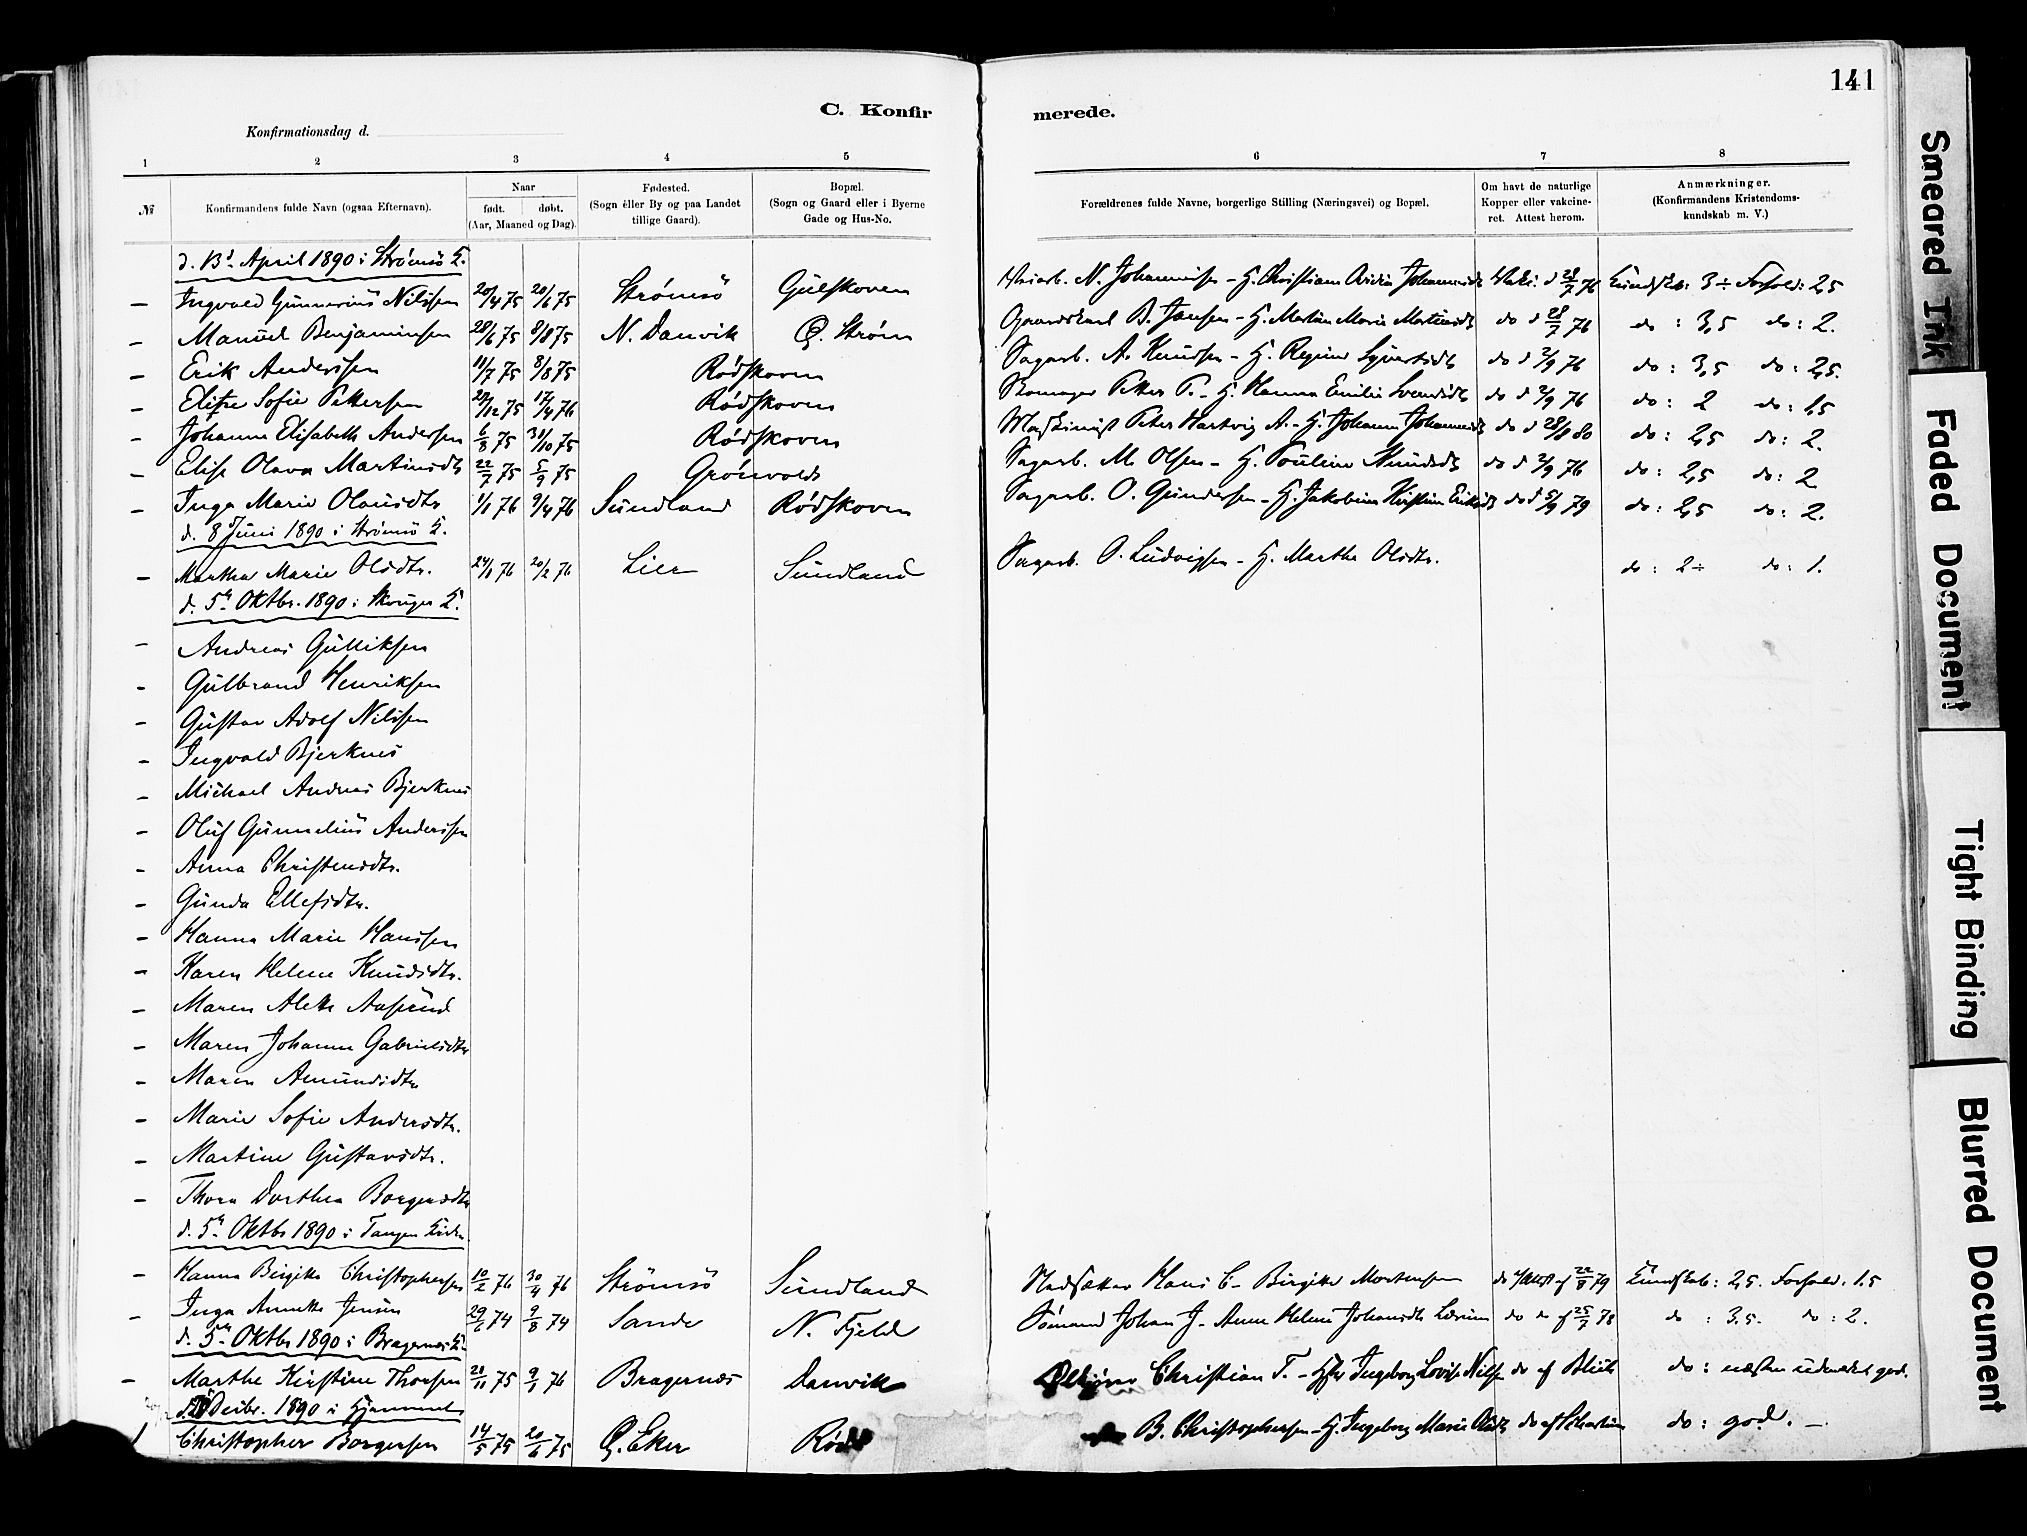 141
C. Konfirmerede.
Konfirmationsdag d.
1 2 3 4 5 6 7 8
№
Konfirmandens fulde Navn (ogsaa Efternavn).
Naar
født. døbt.
(Aar, Maaned og Dag).
Fødested.
(Sogn eller By og paa Landet
tillige Gaard).
Bopæl.
(Sogn og Gaard eller i Byerne
Gade og Hus-No.
Forældrenes fulde Navne, borgerlige Stilling (Næringsvei) og Bopæl.
Om havt de naturlige
Kopper eller vakcine-
ret. Attest herom.
Anmærkninger.
(Konfirmandens Kristendoms-
kundskab m. V.)
d. 13de April 1890 i Strømsö K.
– Ingvald Gunnerius Nilssen 20/4 75 20/6 75 Strömsö Gulskoven N. Johannesen – H. Christiane Johannesdt Vaki: d 28/7 76 Kundsk: 3 ÷ Forhold: 2,5
– Manuel Benjaminsen 28/6 75 8/8 75 N. Danvik G. Ström Gaardskarl B. Jansen – H. Martine Marie Martinsdt do d 28/7 76 do : 3,5 do : 2.
– Erik Anderssen 11/7 75 8/8 75 Rödskoven Sagarb. A. Knudsen – H. Regine Syvertsdt do d 2/9 76 do : 3,5 do : 2,5.
– Elise Sofie Pettersen 27/12 75 17/4 76 Rödskoven Skomager Petter P. – H. Hanna Emilie Svendsdt do d 2/9 76 do : 2 do : 1,5
– Johanne Elisabeth Andersen 6/8 75 31/10 75 Rödskoven Maskinist Peter Hartvig A. – H. Johanne Johannesdt do d 28/8 80 do : 2,5 do : 2.
– Elise Olava Martinsdtr 22/7 75 5/9 75 Grönvolds Sagarb. M. Olsen – H. Pouline Knudsdt do d 2/9 76 do : 2,5 do : 2
– Inga Marie Olausdtr 1/1 76 9/4 76 Sundland Rödskoven Sagarb. O. Gundersen – H. Jakobine Kirstine Eriksdt do d 5/9 79 do : 2,5 do : 2.
d. 8de Juni 1890 i Strømsö K.
– Martha Marie Olsdtr. 24/1 76 20/2 76 Lier Sundland Sagarb. O. Ludvigsen – H. Marthe Olsdtr. do : 2 ÷ do : 1.
d. 5te Oktbr. 1890 i Skouger K.
– Andreas Gulliksen
– Gulbrand Henriksen
– Gustav Adolf Nilssen
– Ingvald Bjerknes
– Michael Andreas Bjerknes
– Oluf Gunnelius Anderssen
– Anna Christensdtr.
– Gunda Ellefsdtr.
– Hanna Marie Hanssen
– Karen Helene Knudsdtr.
– Maren Alette Aasrud
– Maren Johanne Gabrielsdtr
– Maren Amundsdtr
– Marie Sofie Andersdtr.
– Martine Gustavsdtr.
– Thora Dorthea Borgersdtr
d. 5te Oktbr 1890 i Tangen Kirke
– Hanna Birgitte Christophersen 10/2 76 30/4 76 Strömsö Sundland Hans C – Birgitte Mortensen do 22/8 79 Kundskab : 2,5. Forhold. 1.5
– Inga Annette Jensen 29/6 74 9/8 74 Sande N. Fjeld Sömand Johan J – Anne Helene Johansdt do af 25/7 78 do : 3.5. do : 2.
d. 5te Oktbr 1890 i Bragernæs K.
– Marthe Kirstine Thorsen 21/11 75 9/1 76 Bragernæs Danvik Christian T. – Ingeborg Lovise Nilsen do af do : næsten udmærket god.
Decbr. 1890 i Hjemmet
1 Christopher Borgersen 14/5 75 20/6 75 Ö. Eker B. Christophersen – H. Ingeborg Marie Olsdt do af Sebastian do : god. –
Smeared Ink
Faded Document
Tight Binding
Blurred Document